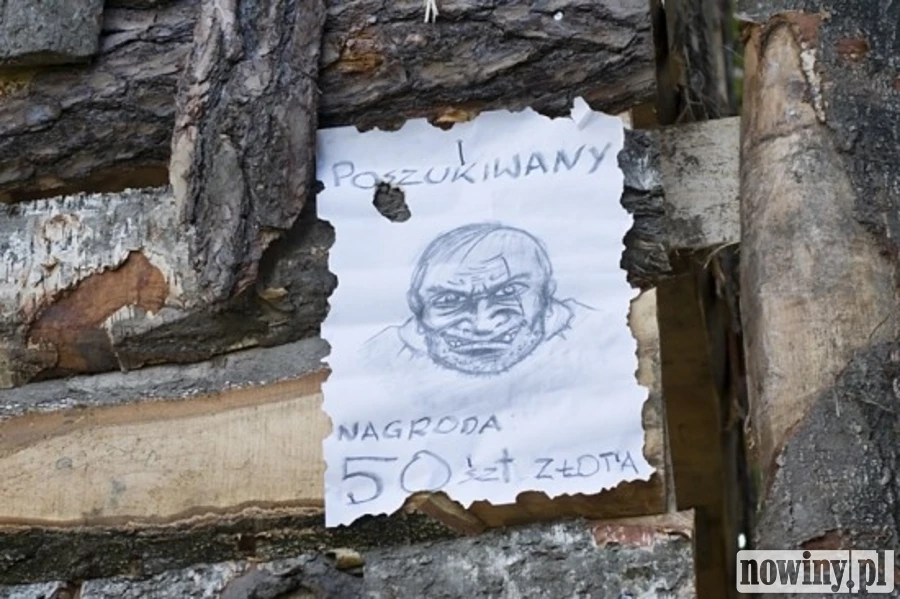 POSZUKIWANY
NAGRODA
50 szt ZŁOTA
nowiny.pl